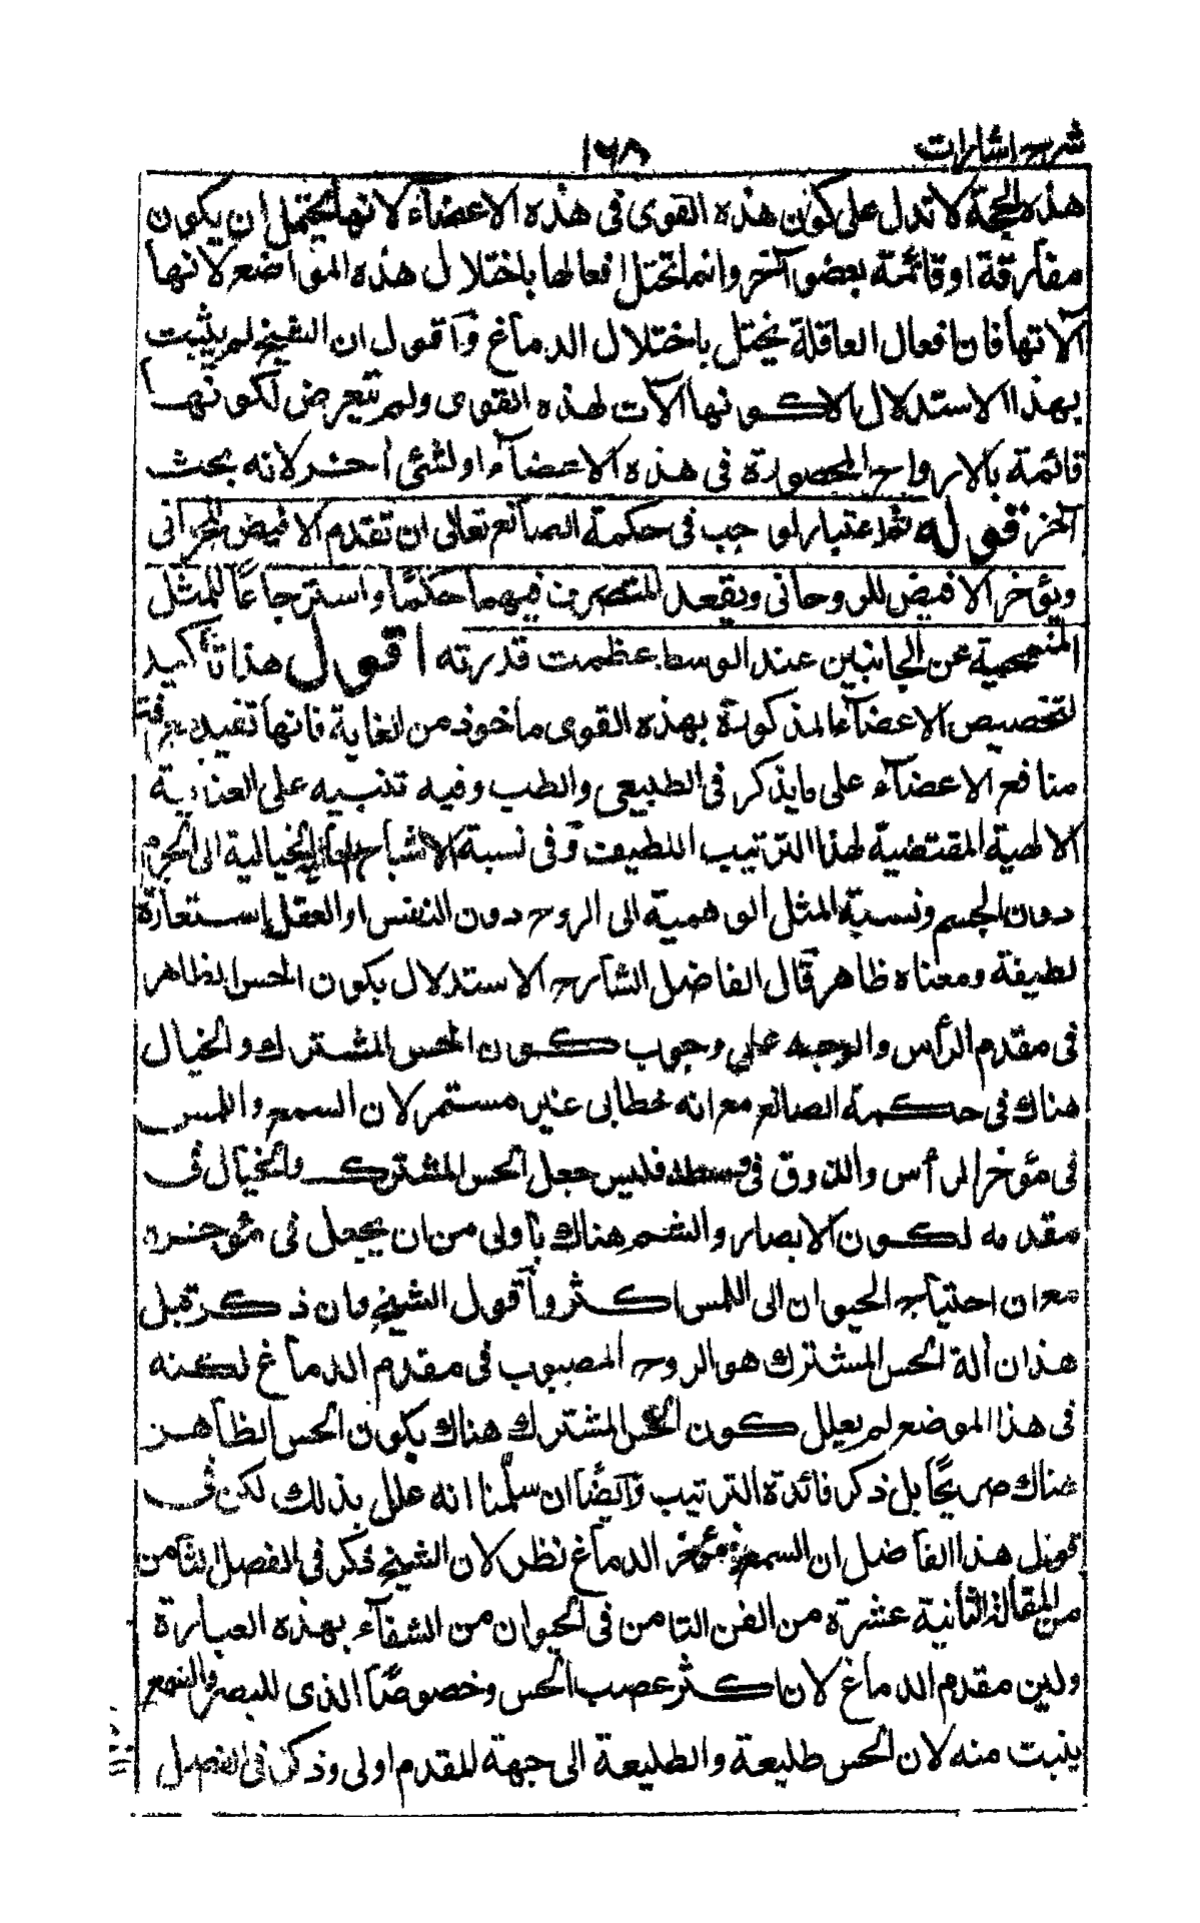 شرح اشارات ١٦٨
هذه الحجة لا تدل على كون هذه القوى فى هذه الاعضآء لانها يحتمل ان يكون
مفارقة او قائمة بعضو آخر وانما تختل افعالها باختلال هذه المواضع لانها
آلاتها فان افعال العاقلة يختل باختلال الدماغ وآقول ان الشيخ لم يثبت
بهذا الاستدلال الا كونها آلات لهذه القوى ولم يتعرض لكونها
قائمة بالارواح المحصورة فى هذه الاعضآء او لشئ اخر لانه بحث
آخر قوله ثم اعتبار لو جب فى حكمة الصانع تعالى ان تقدم الاقيض للجرمانى
ويؤخر الاقيض للروحانى ويقعد المتصرف فيهما حكمًا واسترجاعًا للمثل
المنمحية عن الجانبين عند الوسط عظمت قدرته اقول هذا تأكيد
لتخصيص الاعضآء المذكورة بهذه القوى ماخوذ من الغاية فانها تفيد معرفة
منافع الاعضآء على ما يذكر فى الطبيعى والطب وفيه تنبيه على العناية
الالهية المقتضية لهذا الترتيب اللطيف وفى نسبة الاشباح الخيالية الى الجرم
دون الجسم ونسبة المثل الوهمية الى الروح دون النفس او العقل إستعارة
لطيفة ومعناه ظاهر قال الفاضل الشارح الاستدلال بكون الحس الظاهر
فى مقدم الرأس والوجه على وجوب كون الحس المشترك والخيال
هناك فى حكمة الصانع مع انه خطابى غير مستمر لان السمع واللمس
فى مؤخر الرأس والذوق فى وسطه فليس جعل الحس المشترك والخيال فى
مقدمه لكون الابصار والشم هناك بأولى من ان يجعل فى مؤخره
مع ان احتياج الحيوان الى اللمس اكثر وأقول الشيخ وان ذكر قبل
هذا ان ألة الحس المشترك هو الروح المصبوب فى مقدم الدماغ لكنه
فى هذا الموضع لم يعلل كون الحس المشترك هناك بكون الحس الظاهر
هناك صريحًا بل ذكر فائدة الترتيب وآيضًا ان سلّمنا انه علل بذلك لكن فى
قول هذا الفاضل ان السمع فى مؤخر الدماغ نظر لان الشيخ ذكر فى الفصل الثامن
من المقالة الثانية عشرة من الفن الثامن فى الحيوان من الشفآء بهذه العبارة
ولين مقدم الدماغ لان اكثر عصب الحس وخصوصًا الذى للبصر والسمع
ينبت منه لان الحس طليعة والطليعة الى جهة المقدم اولى وذكر فى الفصل